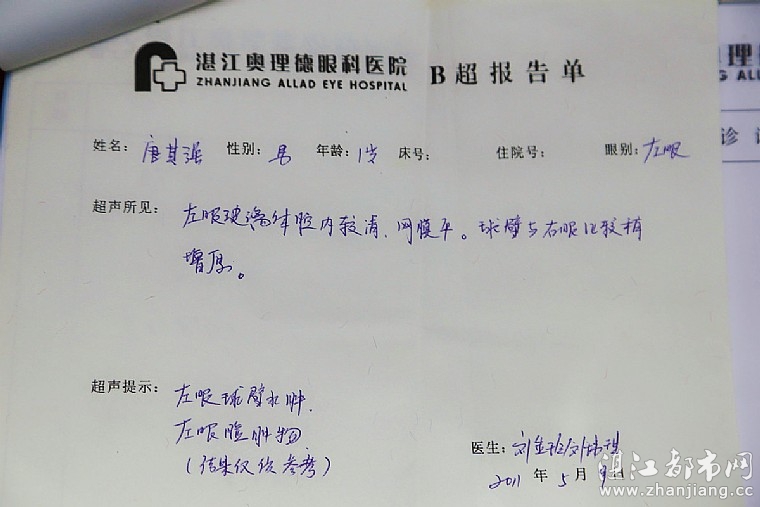 湛江奥理德眼科医院 B超报告单
ZHANJIANG ALLAD EYE HOSPITAL
姓名：唐其强 性别：男 年龄：1岁 床号： 住院号： 眼别：左眼
超声所见：左眼玻璃体腔内较清，网膜平。球壁与右眼比较稍
增厚。
超声提示：左眼球壁水肿
左眼眶肿物
（结果仅供参考）
医生：
2011年5月9日
湛江都市网
www.zhanjiang.cc
理
G ALL
诊